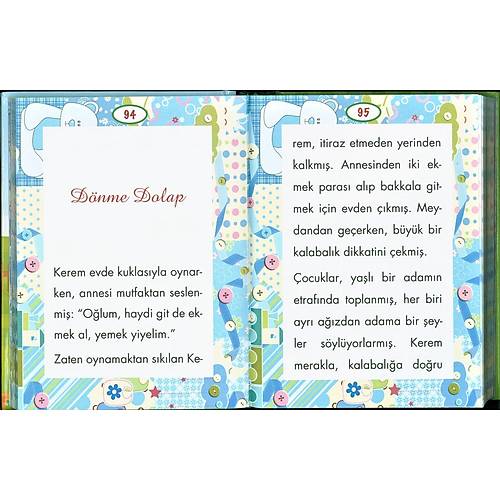 94
Dönme Dolap
Kerem evde kuklasıyla oynar-
ken, annesi mutfaktan seslen-
miş: “Oğlum, haydi git de ek-
mek al, yemek yiyelim.”
Zaten oynamaktan sıkılan Ke-
95
rem, itiraz etmeden yerinden
kalkmış. Annesinden iki ek-
mek parası alıp bakkala git-
mek için evden çıkmış. Mey-
dandan geçerken, büyük bir
kalabalık dikkatini çekmiş.
Çocuklar, yaşlı bir adamın
etrafında toplanmış, her biri
ayrı ağızdan adama bir şey-
ler söylüyorlarmış. Kerem
merakla, kalabalığa doğru